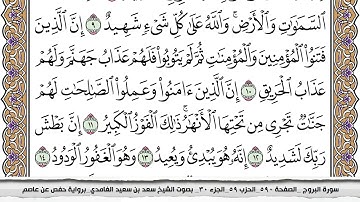 السَّمَٰوَٰتِ وَالْأَرْضِ ۚ وَاللَّهُ عَلَىٰ كُلِّ شَىْءٍ شَهِيدٌ ٩ إِنَّ الَّذِينَ
فَتَنُوا الْمُؤْمِنِينَ وَالْمُؤْمِنَٰتِ ثُمَّ لَمْ يَتُوبُوا فَلَهُمْ عَذَابُ جَهَنَّمَ وَلَهُمْ
عَذَابُ الْحَرِيقِ ١٠ إِنَّ الَّذِينَ ءَامَنُوا وَعَمِلُوا الصَّٰلِحَٰتِ لَهُمْ
جَنَّٰتٌ تَجْرِى مِن تَحْتِهَا الْأَنْهَٰرُ ۚ ذَٰلِكَ الْفَوْزُ الْكَبِيرُ ١١ إِنَّ بَطْشَ
رَبِّكَ لَشَدِيدٌ ١٢ إِنَّهُۥ هُوَ يُبْدِئُ وَيُعِيدُ ١٣ وَهُوَ الْغَفُورُ الْوَدُودُ ١٤
سورة البروج _ الصفحة ٥٩٠ _ الحزب ٥٩ _ الجزء ٣٠ _ بصوت الشيخ سعد بن سعيد الغامدي _ برواية حفص عن عاصم